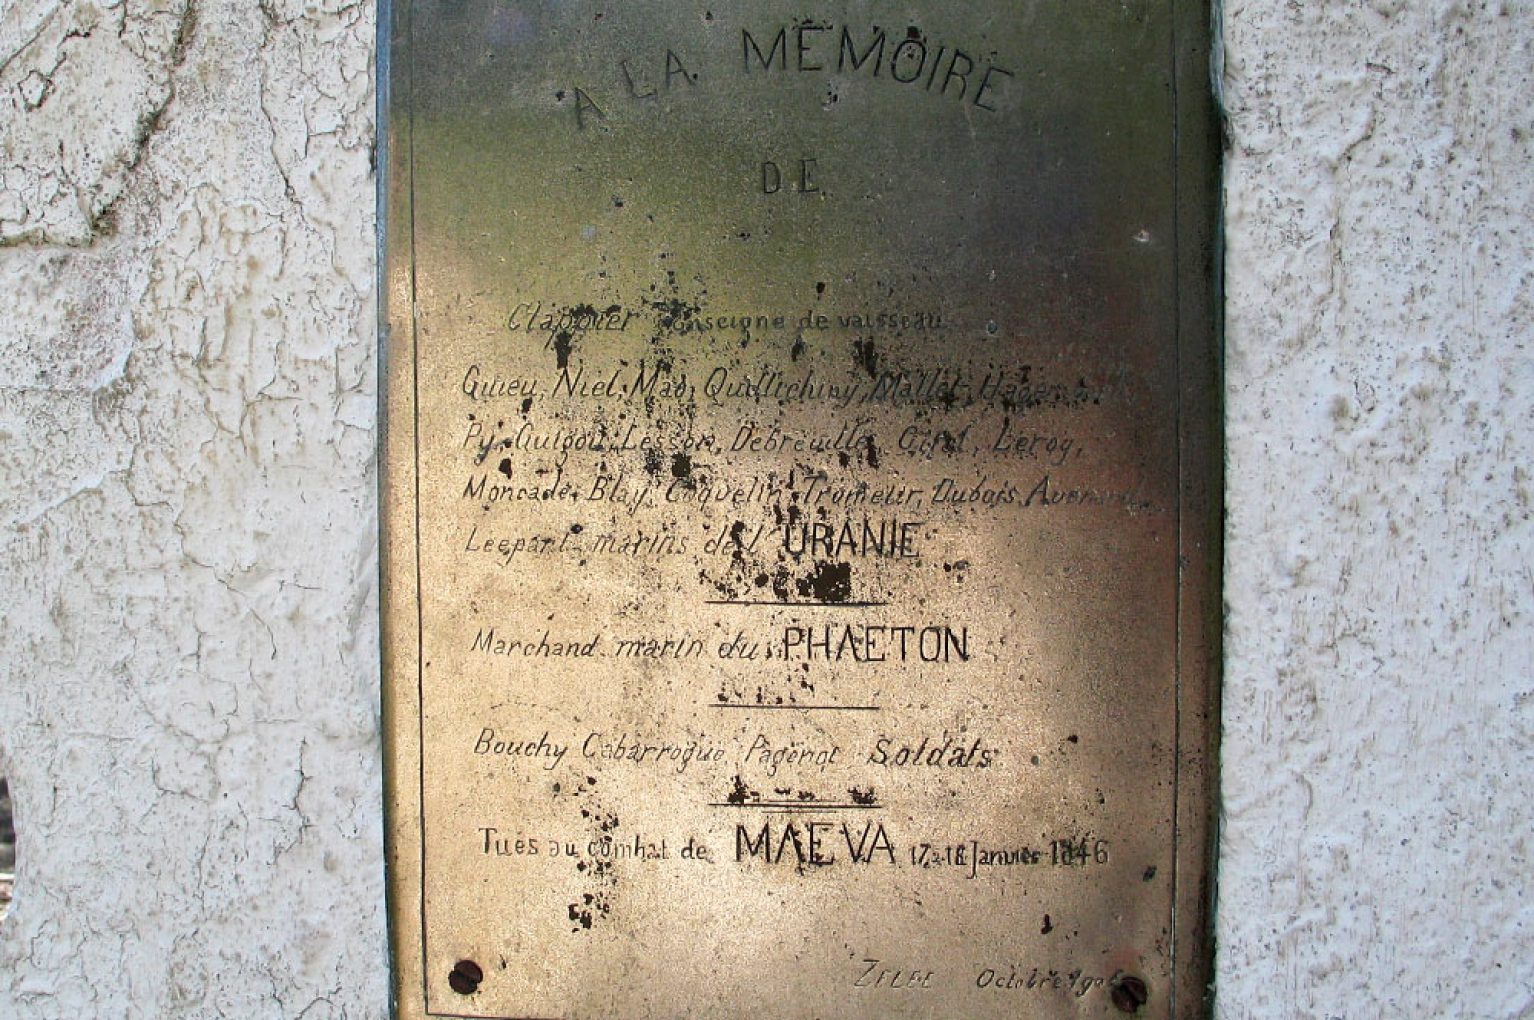 A LA MÉMOIRE
DE
Clappier enseigne de vaisseau
Guieu, Niel, Mao, Quillichiny, Mallet,
Py, Guigou, Lesson, Debreuille, Leroy,
Moncade, Blay, Coquelin, Tromeur, Dubois,
Leepart marins de l'URANIE
Marchand marin du PHAETON
Bouchy Cabarrogue Pagenot Soldats
Tués au combat de MAEVA 17 à 18 Janvier 1846
ZÉLÉE Octobre